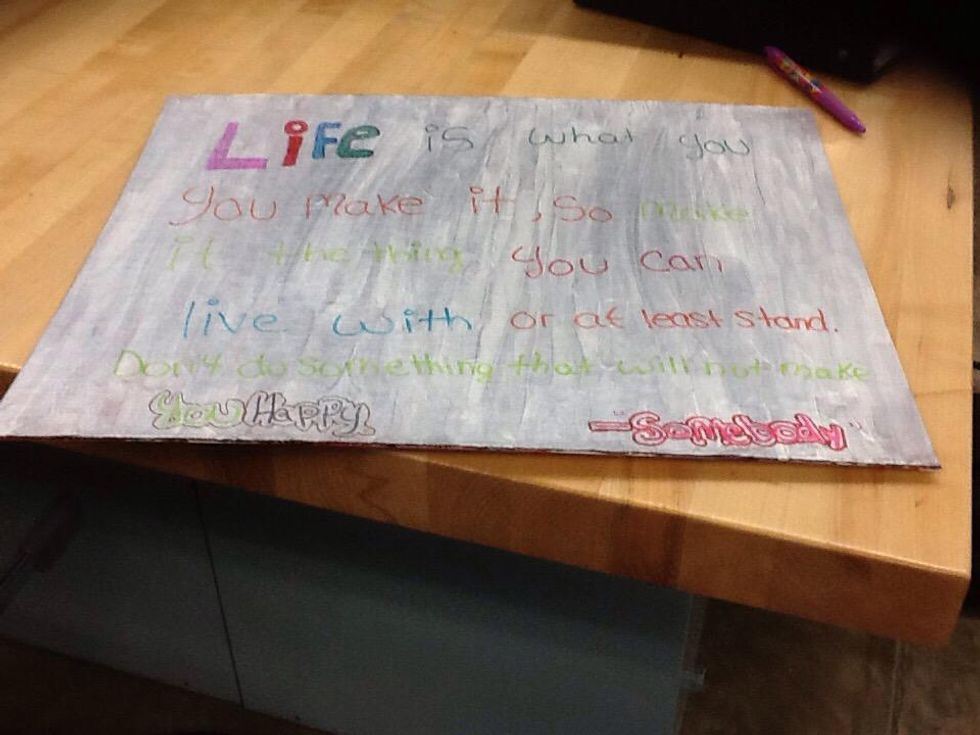 LiFe is what you
you make it, so make
it the thing you can
live with or at least stand.
Don't do something that will not make
you Happy.
-"Somebody"